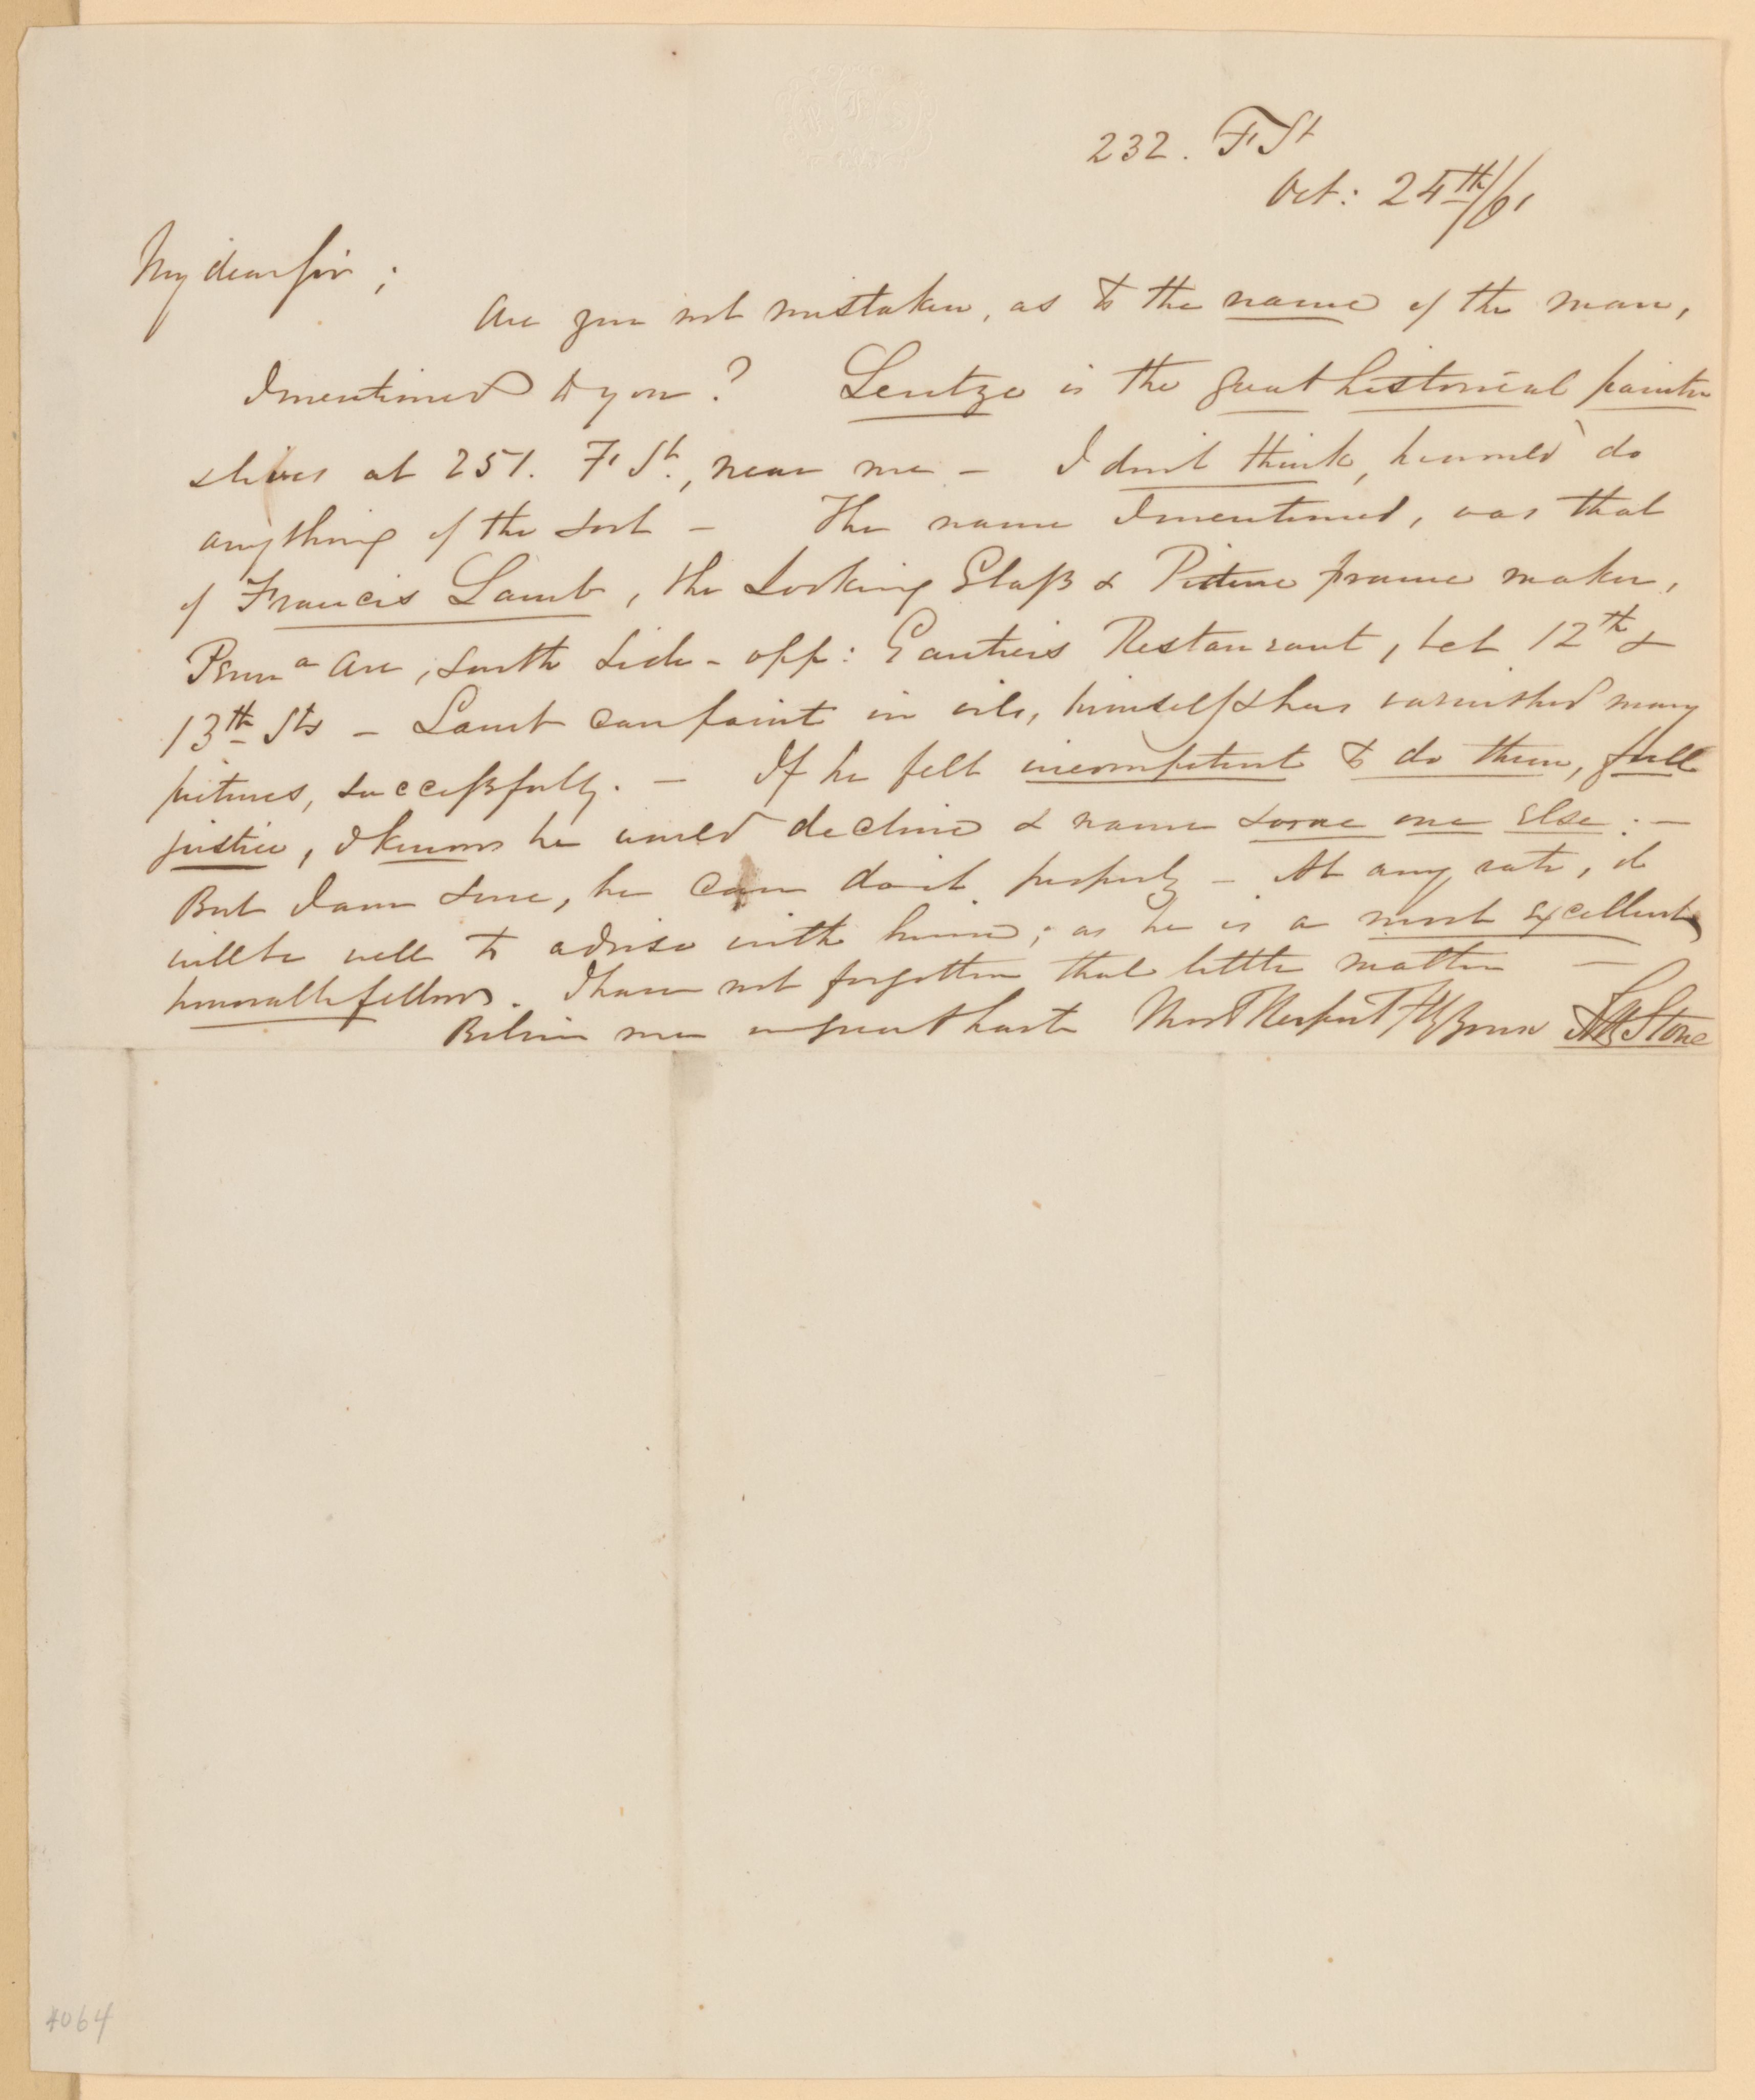 232. F St
Oct: 24th/61
My dear Sir ;
Are you not mistaken, as to the name of the man,
I mentioned to you ? Leutze is the great historical painter
& lives at 251. F St., near me - I don't think, he would do
anything of the sort - The name I mentioned, was that
of Francis Lamb, the Looking Glass & Picture frame maker,
Penna Ave, South Side - opp: Gautier's Restaurant, bet 12th &
13th Sts - Lamb can paint in oils, himself & has varnished many
pictures, successfully. - If he felt incompetent to do them, full
justice, I know he would decline & name some one else : -
But I am sure, he can do it properly - At any rate, it
will be well to advise with him ; as he is a most excellent,
honorable fellow. I have not forgotten that little matter -
Believe me in great haste Most Respectfly yours Stone
4064